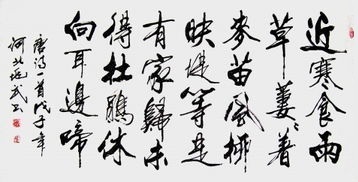 近寒食雨
草萋萋著
麥苗風柳
映堤等是
有家歸未
得杜鵑休
向耳邊啼
唐詩一首戊子年
河北